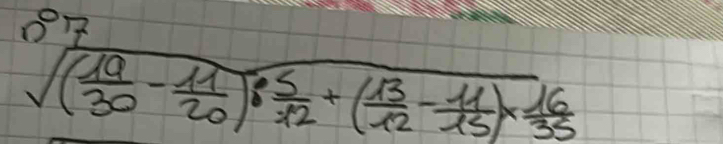 n°7
√(19/30 - 11/20) : 5/12 + (13/12 - 11/15) × 16/35